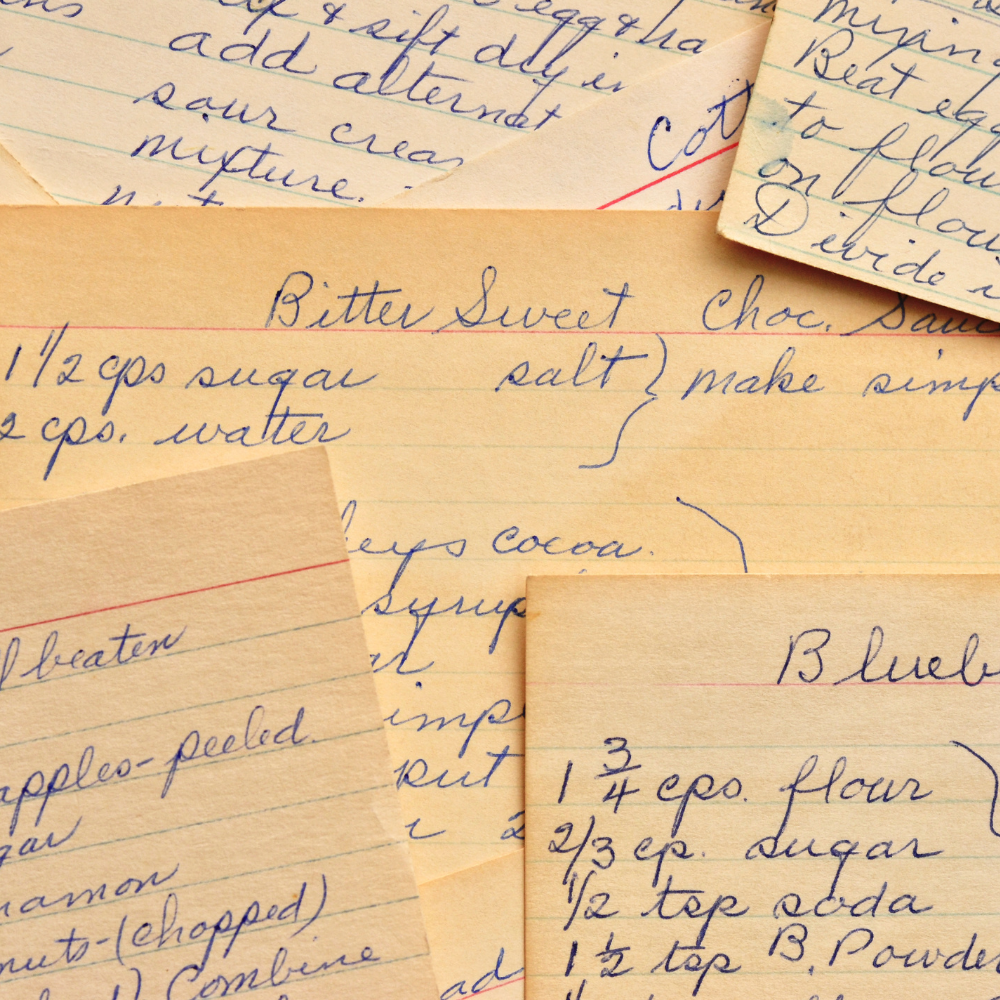 & sift dry in
add alternat
sour crea
mixture.
egg &
Cot
Beat egg
to flou
on flou
Divide i
Bitter Sweet Choc. Sauc
1 1/2 cps sugar salt } make simp
2 cps. water
leys cocoa.
syrup
ar
imp
put
2
ad
l beaten
apples - peeled.
gar
namon
nuts - (chopped)
Combine
Blueb
1 3/4 cps. flour
2/3 cp. sugar
1/2 tsp soda
1 1/2 tsp B. Powder